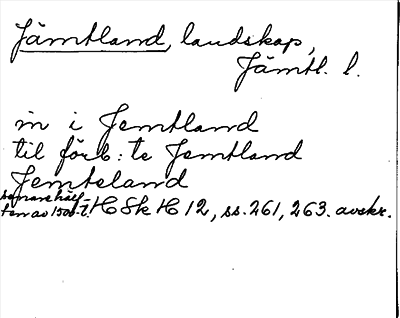 Jämtland, landskap,
Jämtl. l.
in i Jemtland
til förb: te Jemtland
Jemteland
senare hälf-
ten av 1500-t. HSkH 12, ss. 261, 263. avskr.